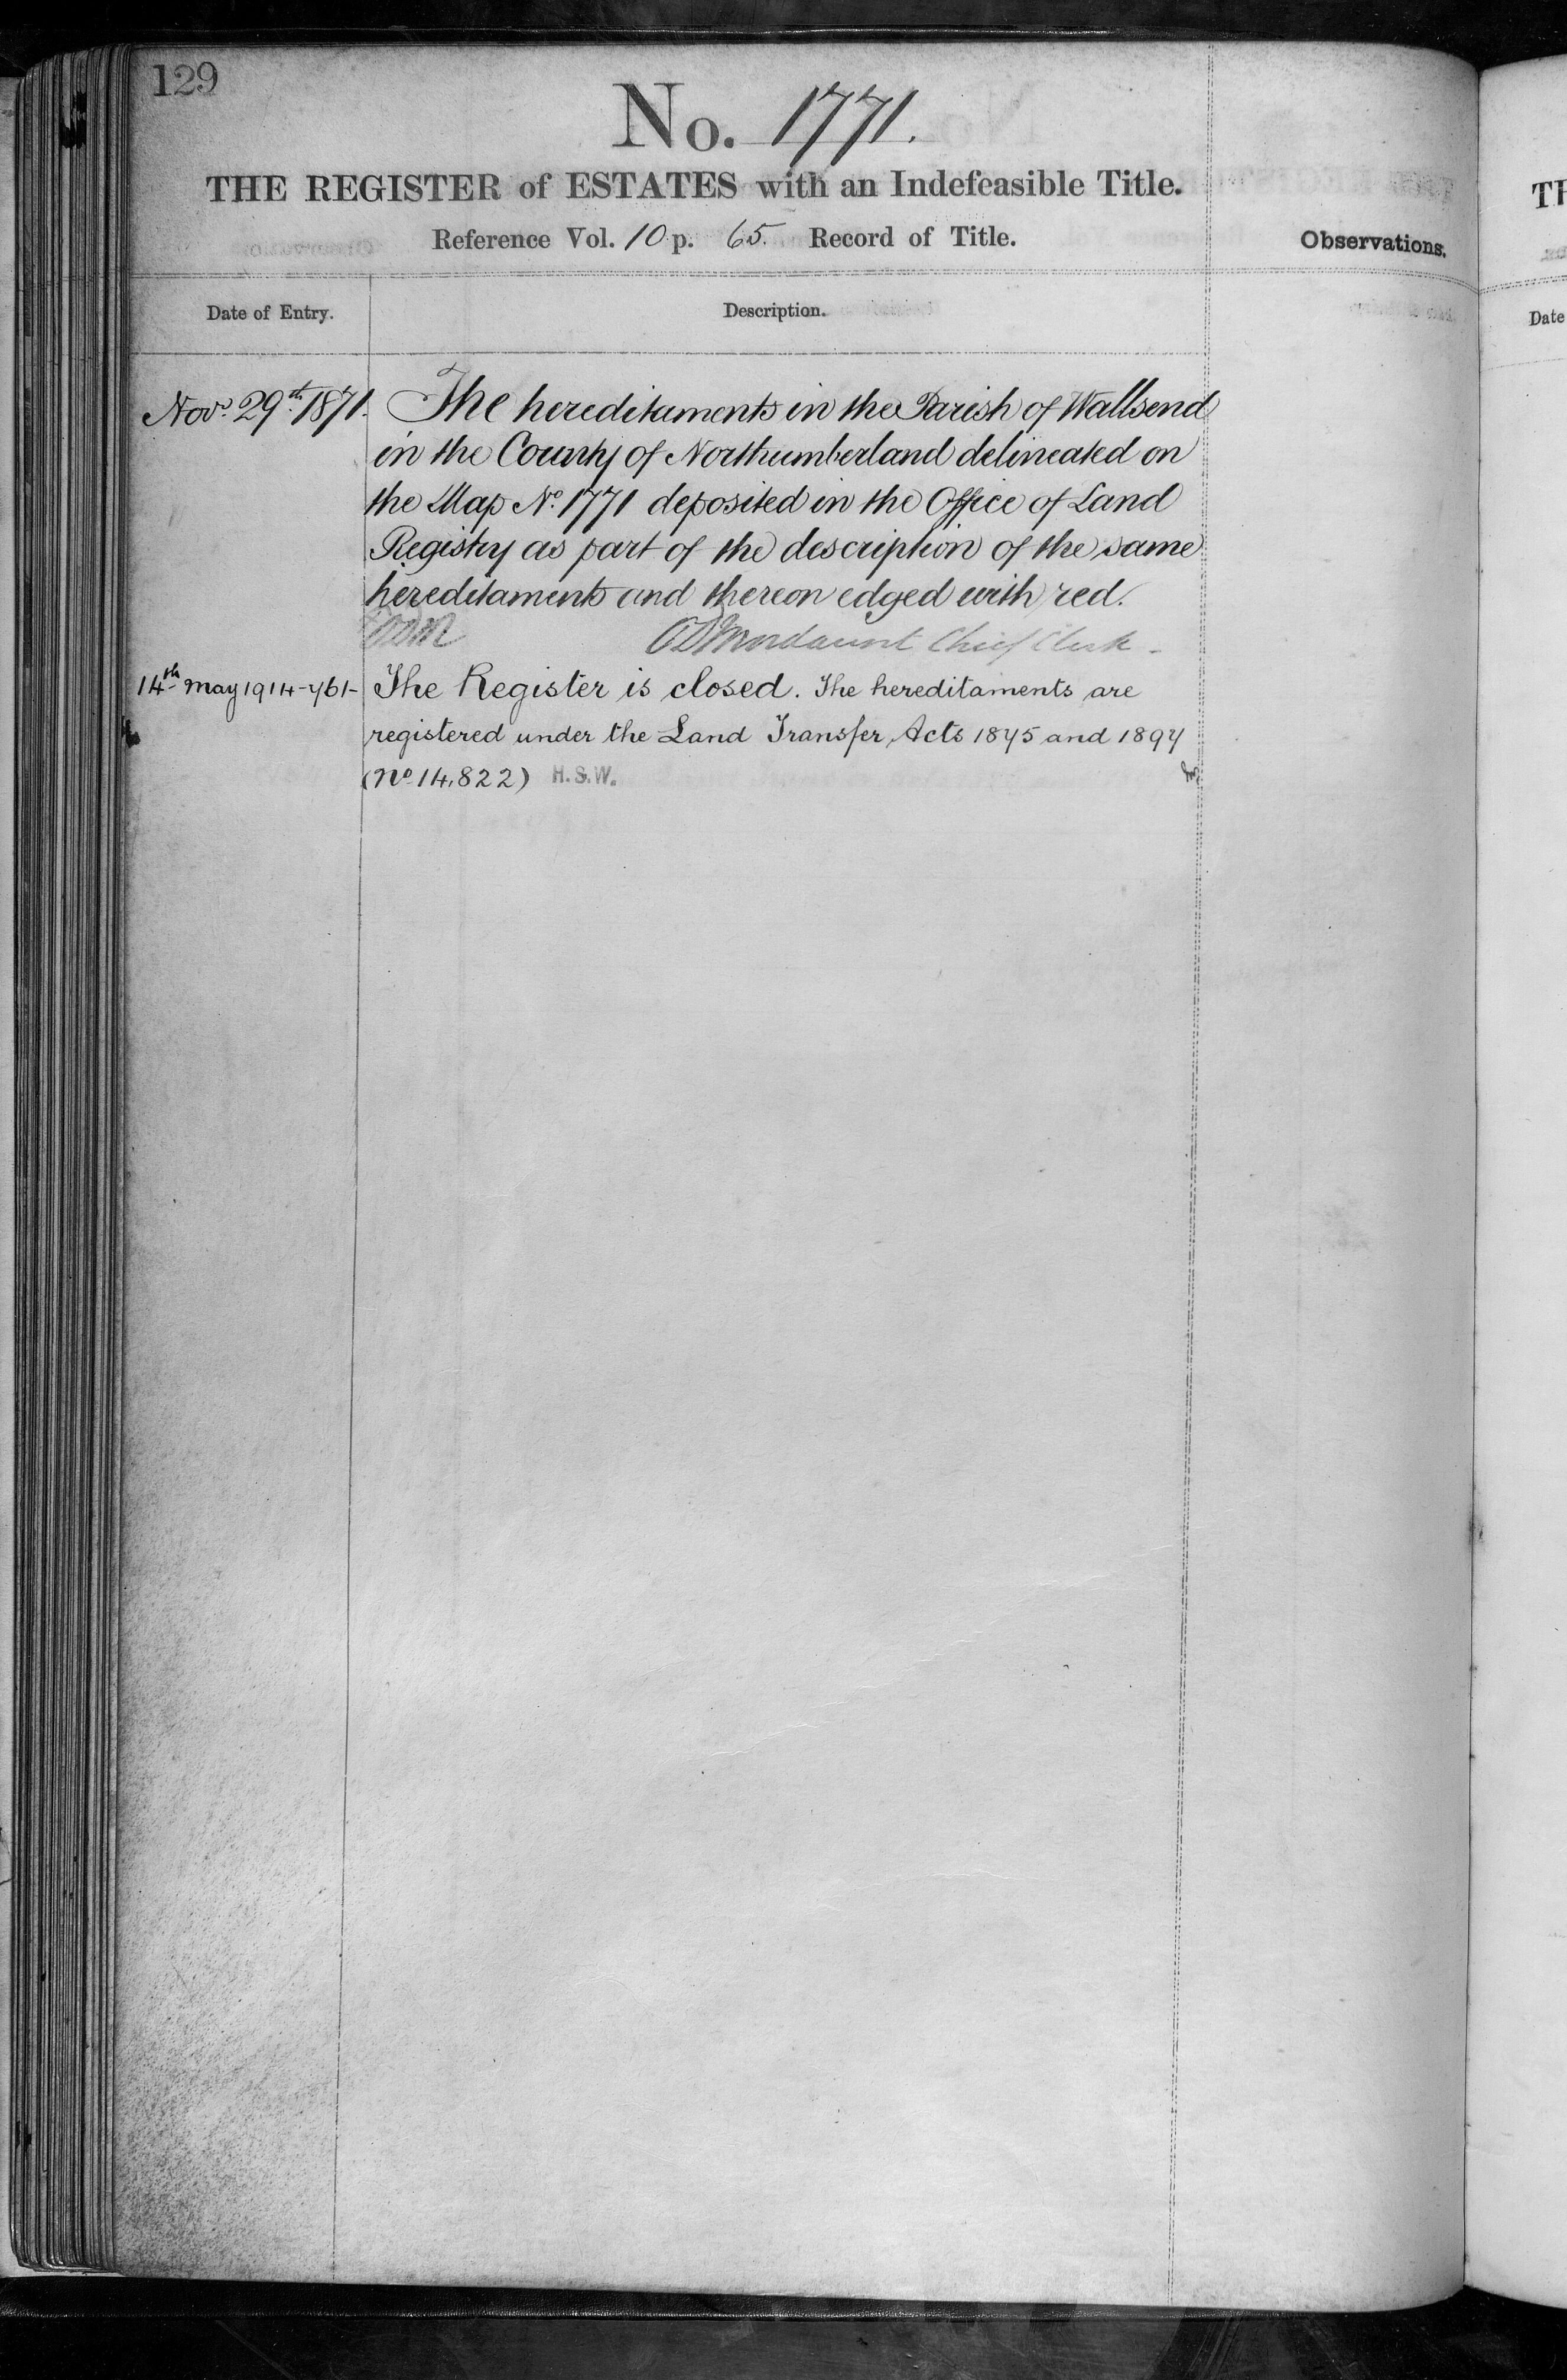 129
No. 1771.
THE REGISTER of ESTATES with an Indefeasible Title.
Reference Vol. 10 p. 65. Record of Title.
Observations.
Date of Entry.
Description.
Novr. 29th. 1871. The hereditaments in the Parish of Wallsend
in the County of Northumberland delineated on
the Map No. 1771 deposited in the Office of Land
Registry as part of the description of the same
hereditaments and thereon edged with red.
ODM ODMordaunt Chief Clerk
14th May 1914-761- The Register is closed. The hereditaments are
registered under the Land Transfer Acts 1875 and 1897
(No. 14,822) H.S.W.
TH
Date